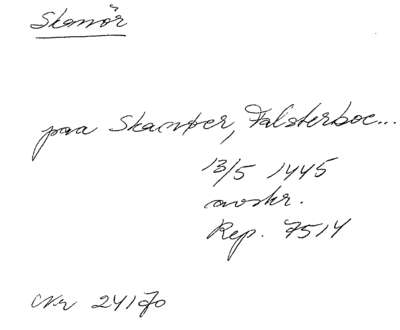 Skanör
paa Skanøer, Falsterboe...
13/5 1445
avskr.
Rep. 7514
Nr 24170